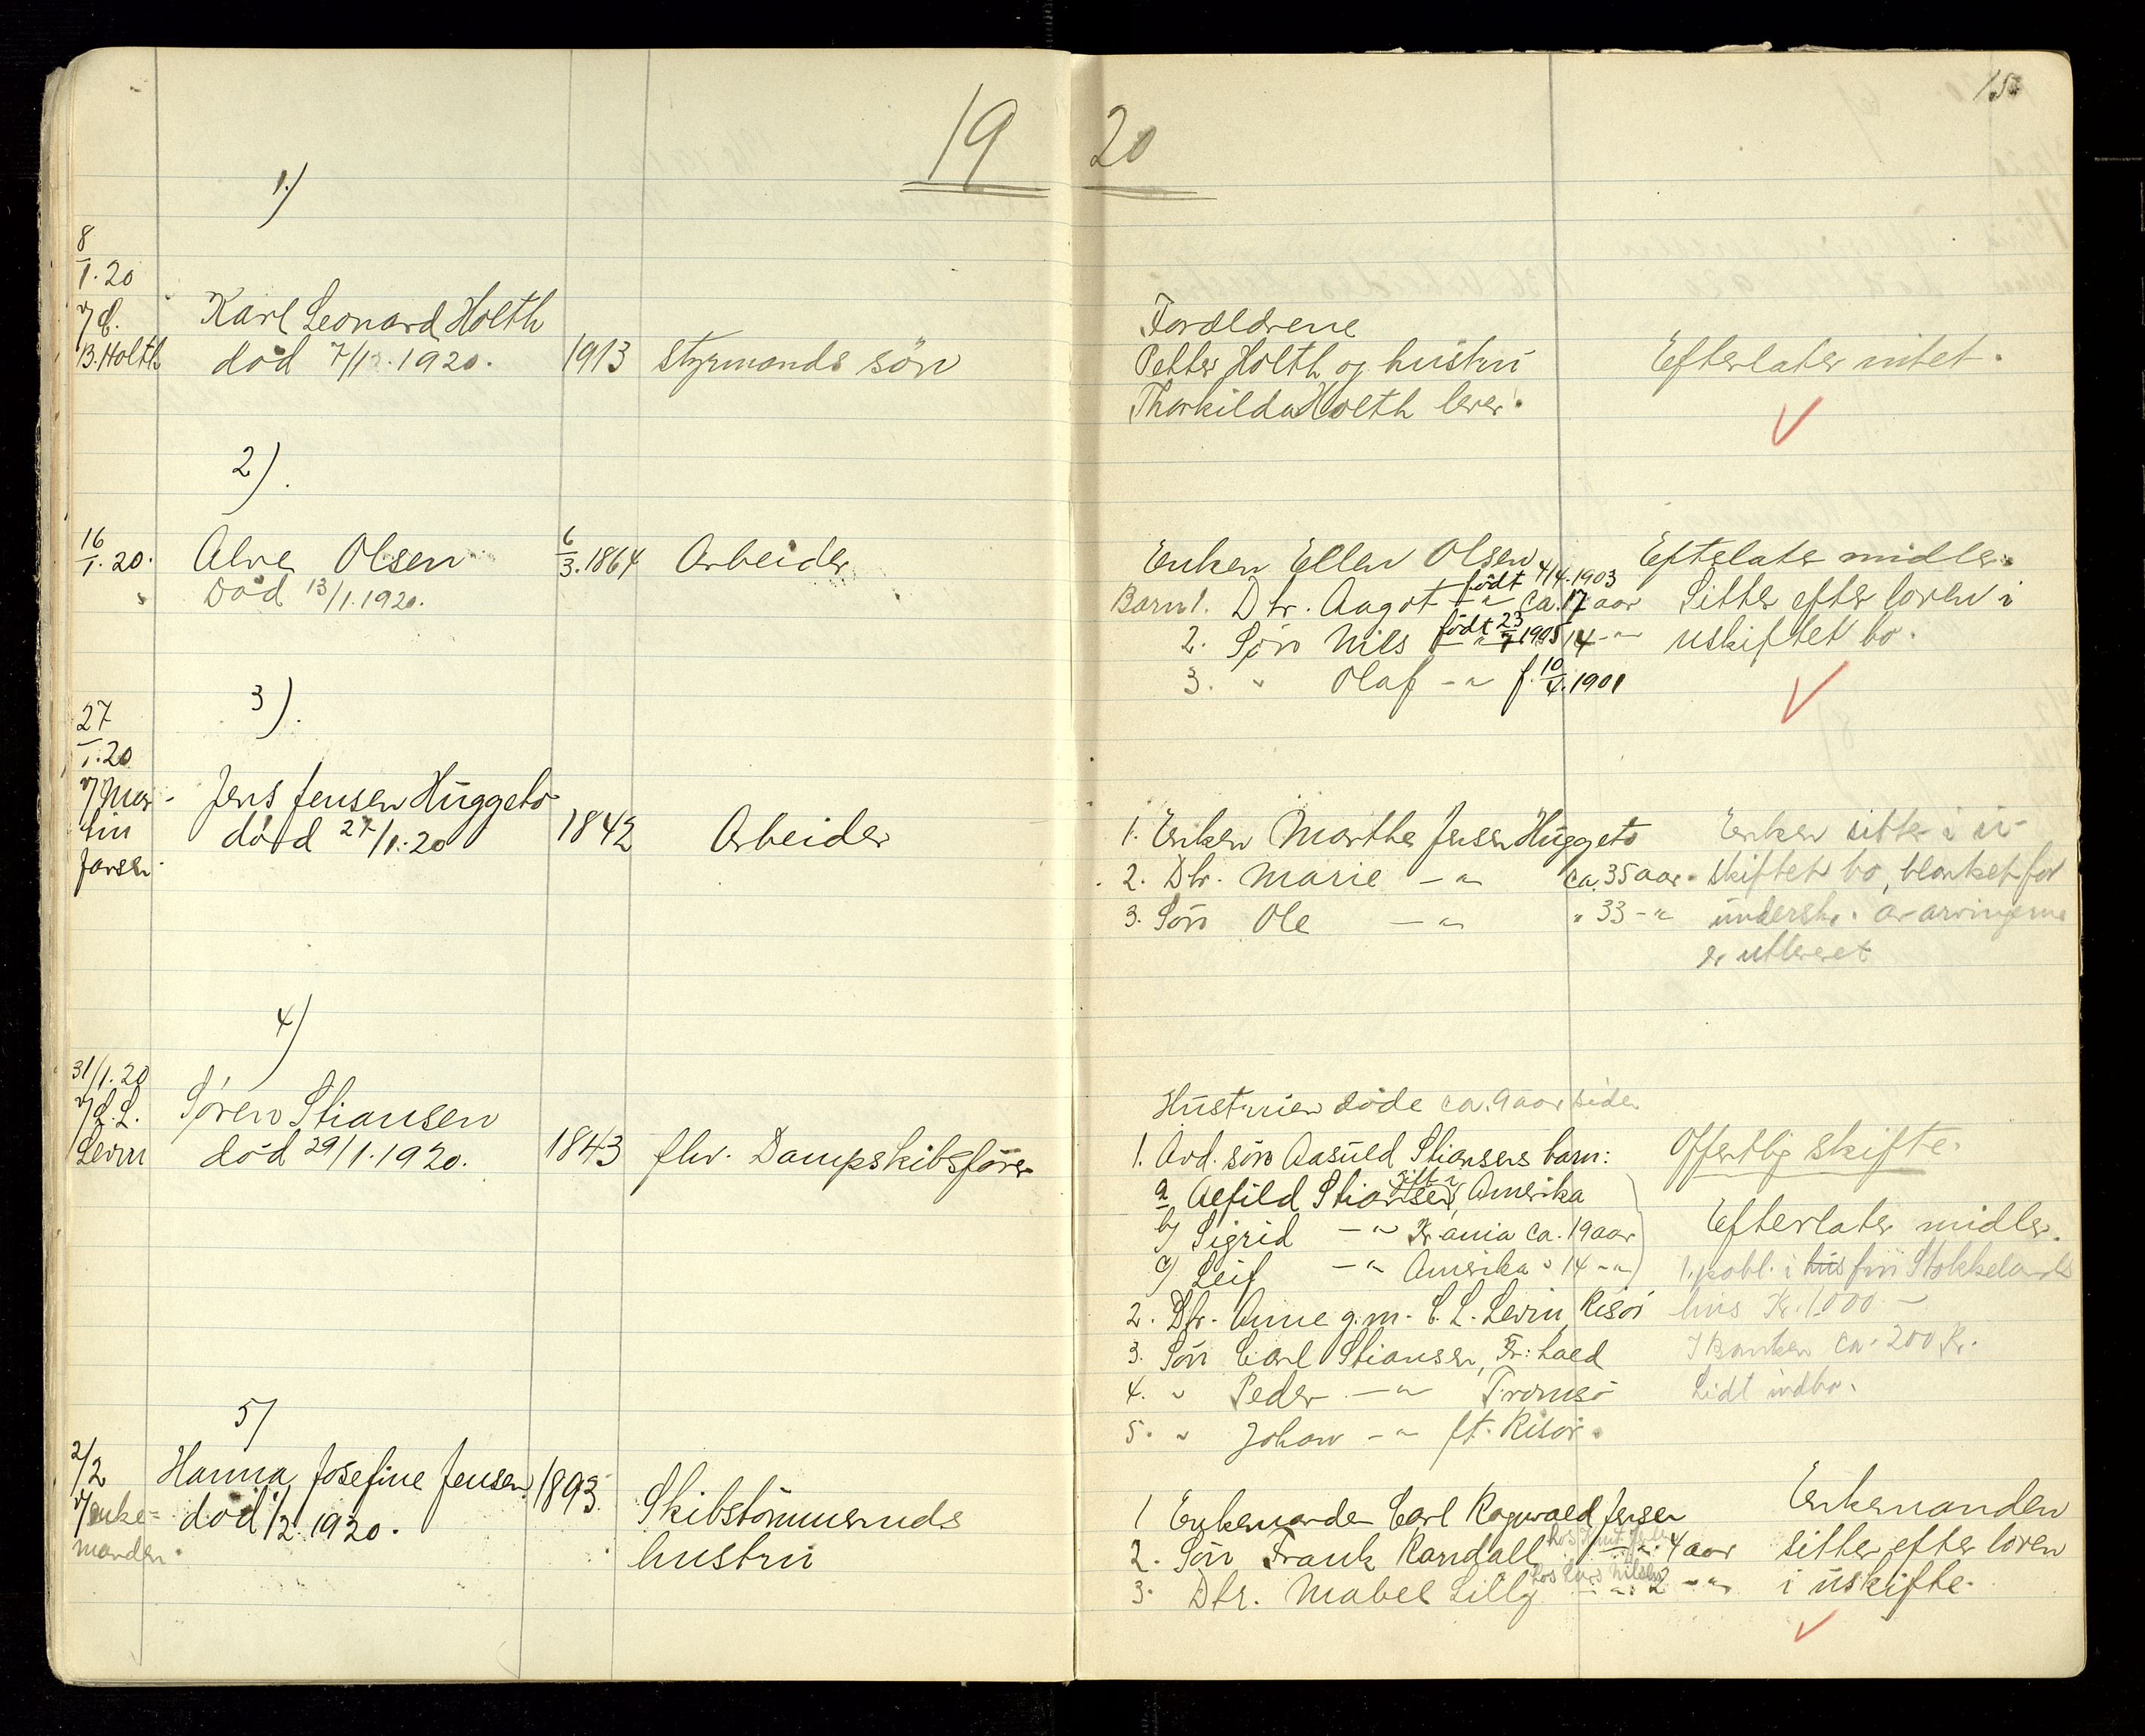 19 20
15
1.)
8/1.20
v/ C.
B. Holth
Karl Leonard Holth
död 7/1. 1920.
1913
Styrmands sön
Forældrene
Petter Holth og hustru
Thorkilda Holth lever.
Efterlater intet.
2).
16/1.20.
Alve Olsen
Död 13/1.1920.
6/3.1864
Arbeider
Enken Ellen Olsen
Barn 1. Dtr. Aagot -"- født 4/4.1903 ca. 17 aar
2. Søn Nils -"- født 23/7 1905 14 -"-
3. " Olaf -"- f. 10/4.1901
Efterlater midler.
Sitter efter loven i
uskiftet bo.
3).
27/1.20
v/ Mar-
tin
Jensen
Jens Jensen Huggeto
död 27/1.20
1842
Arbeider
1. Enken Marthe Jensen Huggeto
2. Dtr. Marie -"- ca. 35 aar
3. Søn Ole -"- " 33 -"-
Enken sitter i u-
skiftet bo, blanket for
underskr. av arvingerne
er utleveret
4)
31/1.20
v/ C. L.
Levin
Søren Stiansen
död 29/1.1920.
1843
fhv. Dampskibsfører
Hustruen døde ca. 9 aar siden
1. Avd. søn Aasuld Stiansens barn:
a Alfild Stiansen, gift i Amerika
b/ Sigrid -"- Kr.ania ca. 19 aar
c/ Leif -"- Amerika " 14 -"-
2. Dtr. Anne g.m. C. L. Levin, Risør
3. Søn Carl Stiansen, Fr:hald
4. " Peder -"- Tromsö
5. " Johan -"- ft. Risör.
Offentlig skifte.
Efterlater midler.
1. pobl. i hus fru Stokkelands
hus Kr. 1000 -
I Banken ca. 200 Kr.
Lidt indbo.
5/
2/2
v/ enke-
manden
Hanna Josefine Jensen
död 1/2 1920.
1893
Skibstömmermds
hustru
1 Enkemanden Carl Ragnvald Jensen
2. Søn Frank Randall -"- 4 aar
3. Dtr. Mabel Lilly -"- 2 -"-
hos Lars Nilsen
Enkemanden
sitter efter loven
i uskifte.